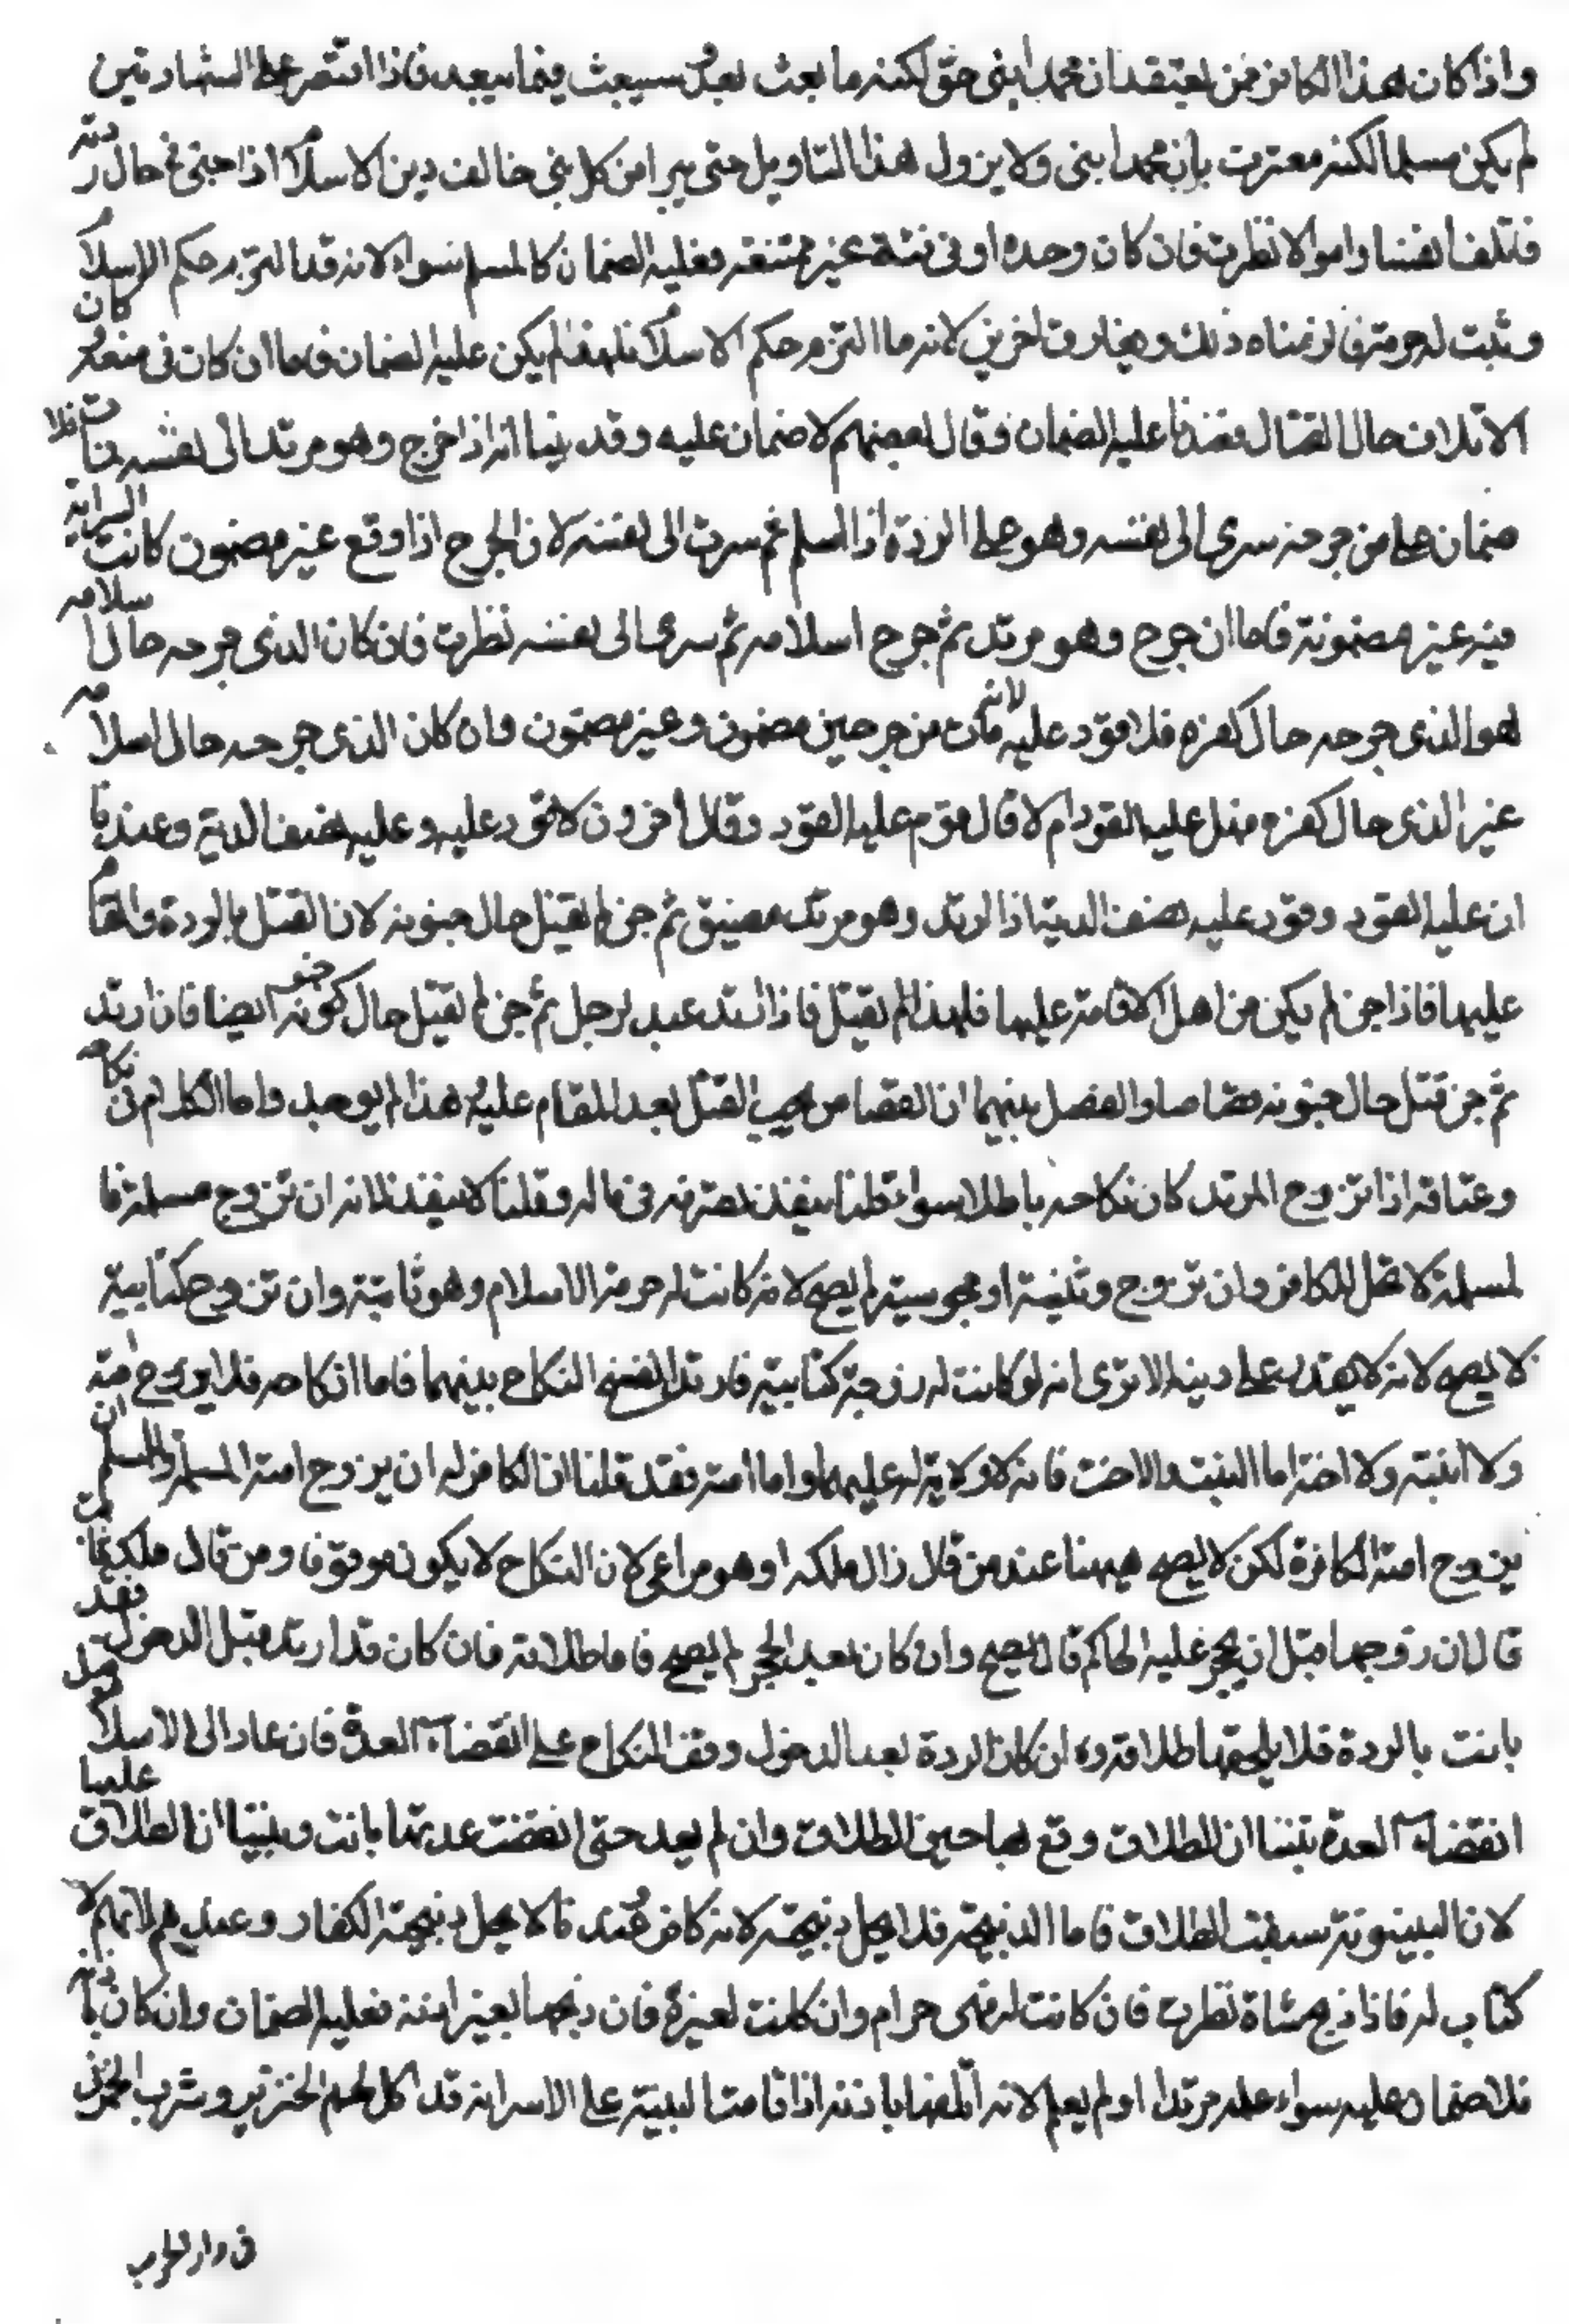 واذا كان هذا الكافر ممن يعتقد ان محمدا نبى حق لكنه ما بعث بعد وسيبعث فيما بعد فاذا اقتصر على الشهادتين
لم يكن مسلما لكنه معترف بان محمدا نبى ولا يزول هذا التاويل حتى يبرا من كل دين خالف دين الاسلام اذا جنى فى حال ردته
فاتلف انفسا واموالا نظرت فان كان وحده او فى فئة غير ممتنعة فعليه الضمان كالمسلم سواء لانه قد التزم حكم الاسلام
وثبت له حرمته فالزمناه ذلك ويفارق الحربى لانه ما التزم حكم الاسلام فلهذا لم يكن عليه الضمان فاما ان كان فى منعة كان
الاتلاف حال القتال فعندنا عليه الضمان وقال بعضهم لا ضمان عليه وقد بينا انه اذا جرح وهو مرتد الى نفسه فمات فلا
ضمان على من جرحه سرى الى نفسه وهو على الردة اذ اسلم ثم سرت الى نفسه لان الجرح اذا وقع غير مضمون كانت السراية
فيه غير مضمونة فاما ان جرح وهو مرتد ثم جرح اسلامه ثم سرى الى نفسه نظرت فان كان الذى جرحه حال اسلامه
هو الذى جرحه حال كفره فلا قود عليه لانه مات من جرحين مضمون وغير مضمون وان كان الذى جرحه حال اسلامه
غير الذى حال كفره فهل عليه القود ام لا قال قوم عليه القود وقال آخرون لا قود عليه وعليه نصف الدية وعندنا
ان عليه القود وقود عليه نصف الدية اذا ارتد وهو مرتد مفيق ثم جن لم يقتل حال جنونه لان القتل بالردة والمقام
عليها فاذا جن لم يكن من اهل الاقامة عليها فلهذا لم يقتل فاذا ارتد عبد لرجل ثم جن لم يقتل حال كونه جنونه ايضا فان ارتد
ثم جن قتل حال جنونه قصاصا والفصل بينهما ان القصاص يجب القتل بعد المقام عليه هذا لم يوجد واما الكلام فى نكاحه
وعتاقه اذا تزوج المرتد كان نكاحه باطلا سواء قلنا ينفذ تصرفه فى ماله وقلنا لا ينفذ لانه ان تزوج مسلمة فا
لمسلمة لا تحل للكافر وان تزوج وثنية او مجوسية لم يصح لانه كانت له حرمة الاسلام وهو ثابتة وان تزوج كتابية
لا يصح لانه لا يقر على دينه الا ترى انه لو كانت له زوجة كتابية فارتد انفسخ النكاح بينهما فاما انكاحه فلا يزوج امته
ولا ابنته ولا اخته اما البنت والاخت فانه لا ولاية له عليهما واما امته فقد قلنا ان الكافر له ان يزوج امته المسلمة والمسلم ان
يزوج امته الكافرة لكن لا يصح هيهنا عند من قال زال ملكه او هو مراعى لان النكاح لا يكون موقوفا ومن قال ملكه ثابت
قال ان زوجها قبل ان يحجر عليه الحاكم قال يصح وان كان بعد الحجر لم يصح فاما طلاقه فان كان قد ارتد قبل الدخول فقد
بانت بالردة فلا يلحقها طلاقه وان كان الردة بعد الدخول وقف النكاح على انقضاء العدة فان عاد الى الاسلام قبل
انقضاء العدة تبينا ان الطلاق وقع بها حين الطلاق وان لم يعد حتى انقضت عدتها بانت وتبينا ان الطلاق عليها
لان البينونة سبقت الطلاق فاما الذبيحة فلا يحل ذبيحته لانه كافر عندنا لا يحل ذبيحة الكفار وعندهم لانه لا
كتاب له فاذا ذبح شاة نظرت فان كانت له فهى حرام وان كانت لغيره فان ذبحها بغير اذنه فعليه الضمان وان كان باذنه
فلا ضمان عليه سواء علمه مرتدا او لم يعلم لانه اتلفها باذنه اذا قامت البينة على الاسرانه قد اكل لحم الخنزير وشرب الخمر
فى دار الحرب